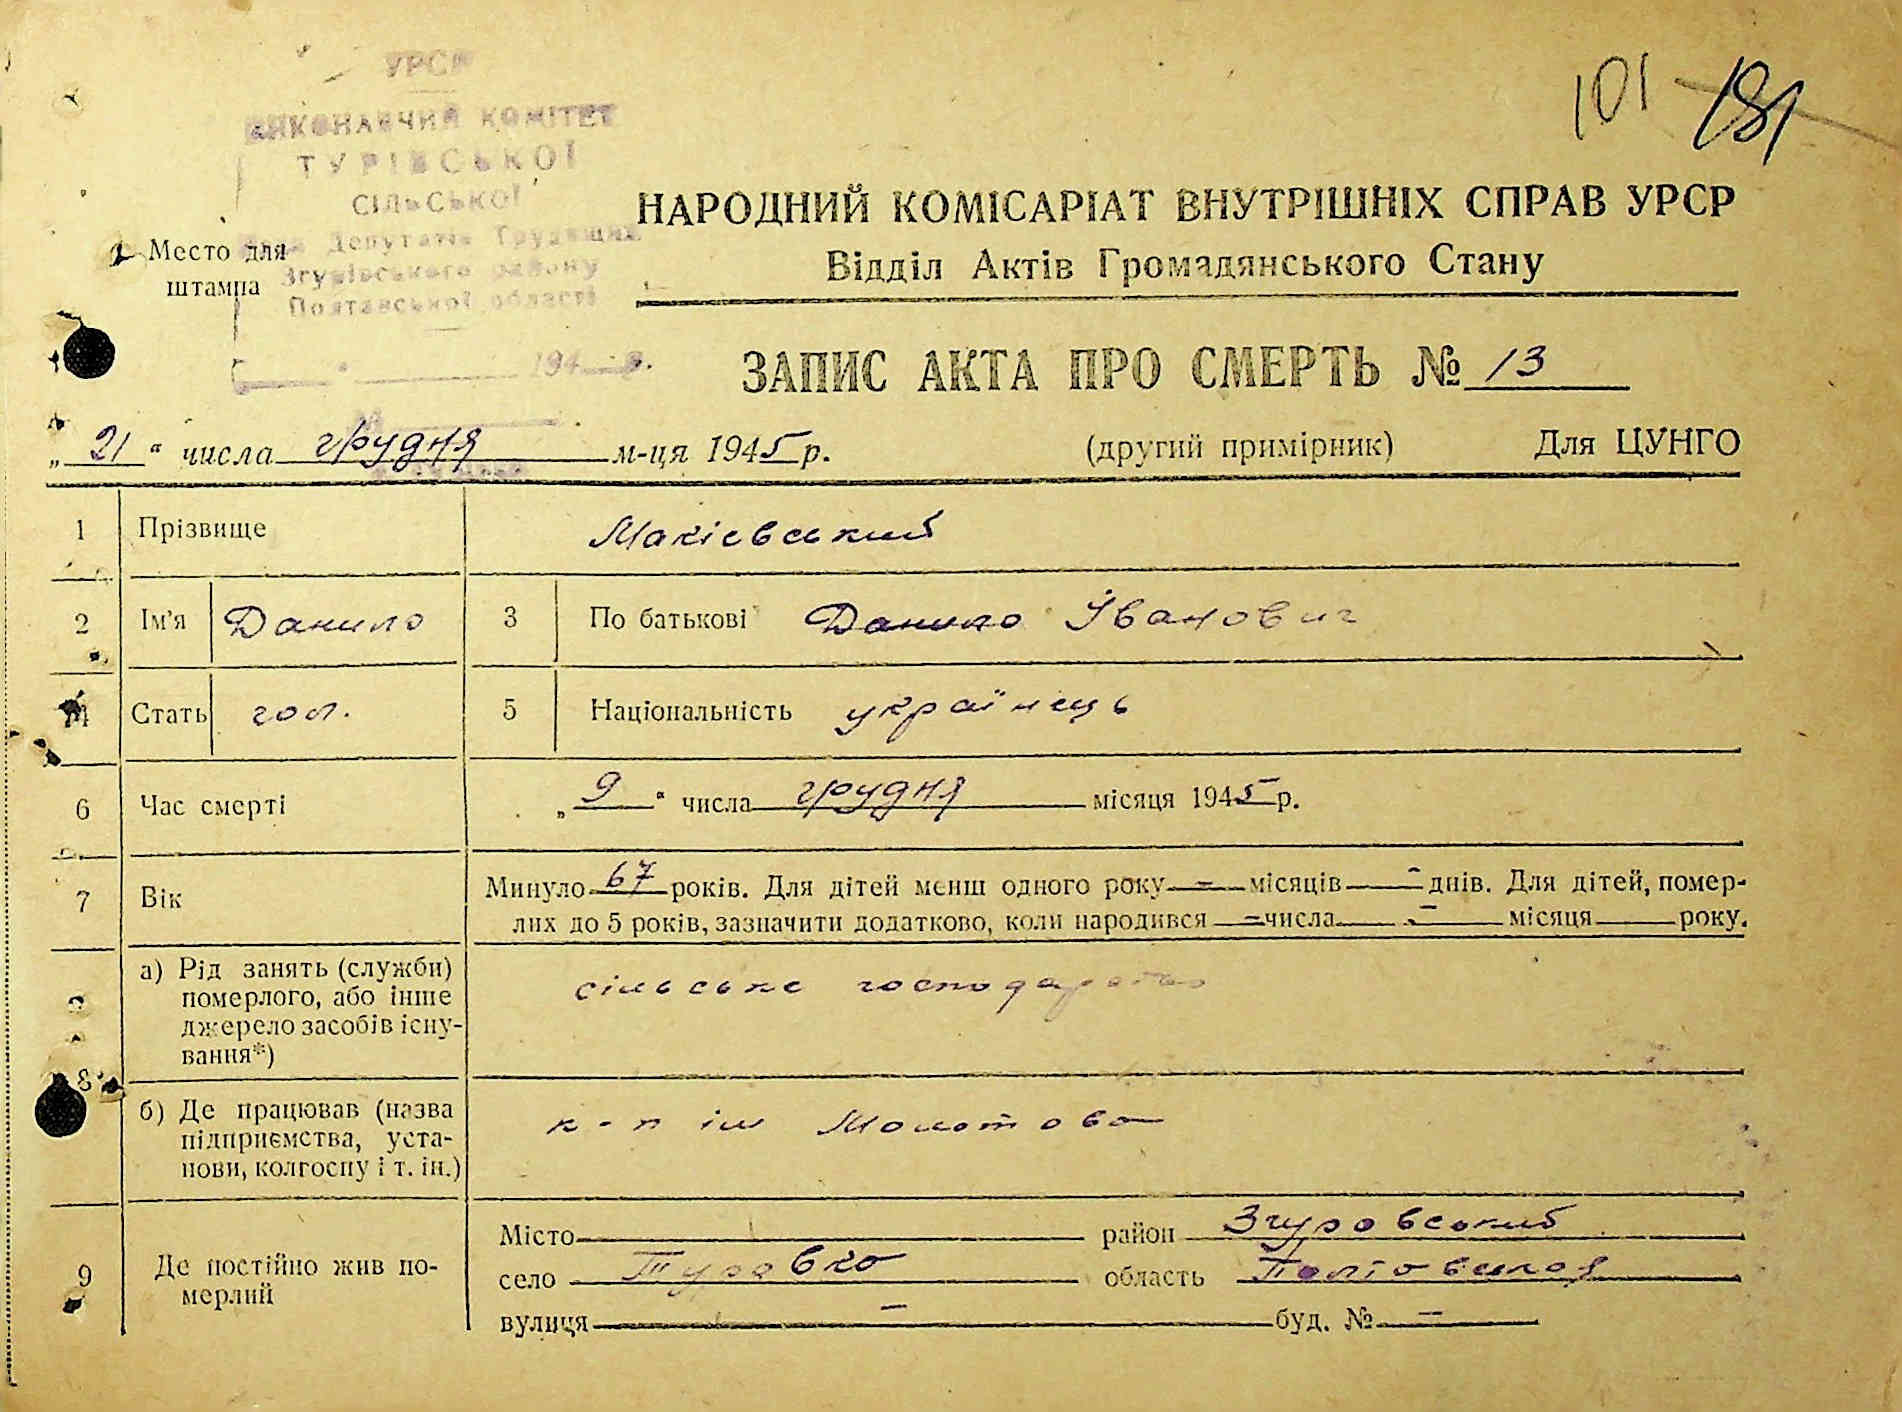 101 181
УРСР
ВИКОНАВЧИЙ КОМІТЕТ
ТУРІВСЬКОЇ
СІЛЬСЬКОЇ
Депутатів Трудящих
Згурівського району
Полтавської області
194 р.
Место для
штампа
НАРОДНИЙ КОМІСАРІАТ ВНУТРІШНІХ СПРАВ УРСР
Відділ Актів Громадянського Стану
ЗАПИС АКТА ПРО СМЕРТЬ № 13
„21“ числа грудня м-ця 1945 р.
(другий примірник) Для ЦУНГО
1 Прізвище Макієвський
2 Ім'я Данило 3 По батькові Данило Іванович
4 Стать чол. 5 Національність українець
6 Час смерті „9“ числа грудня місяця 1945 р.
7 Вік Минуло 67 років. Для дітей менш одного року – місяців – днів. Для дітей, помер-
лих до 5 років, зазначити додатково, коли народився – числа – місяця року.
8 а) Рід занять (служби)
померлого, або інше
джерело засобів існу-
вання*)
сільське господарство
б) Де працював (назва
підприємства, уста-
нови, колгоспу і т. ін.)
к-п ім Молотова
9 Де постійно жив по-
мерлий
Місто район Згуровський
село Туровка область Полтовская
вулиця – буд. № –